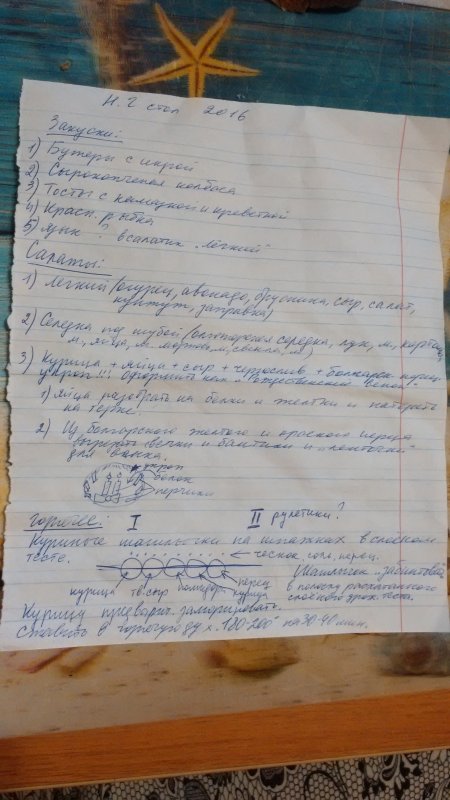 Н.Г стол 2016
Закуски:
1) Бутеры с икрой
2) Сырокопченая колбаса
3) Тосты с и креветкой
4) Красн. рыбка
5) Язык ? в салатик "Легкий"
Салаты:
1) Легкий (огурец, авокадо, брусника, сыр, салат,
кунжут, заправка)
2) Селедка под шубой (селедка, лук, м, картошка,
м, яйца, м, морковь, м, свекла, м)
3) Курица + яйца + сыр + чернослив + болгарск. перец.
укроп!!! Оформить как "Рождественский венок".
1) Яйца разобрать на белки и желтки и натереть
на терке
2) Из болгарского желтого и красного перца
вырезать свечки и бантики и "ленточки"
для венка.
укроп
белок
перчики
горячее: I II рулетики?
Куриные шашлычки на шпажках в слоеном
тесте.
чеснок, соль, перец.
курица тв. сыр помидор курица перец
Шашлычок "запеленать"
в полоску раскатанного
слоеного дрож. теста.
Курицу предварит. замариновать.
Ставить в горячую дух. 180-200° на 30-40 мин.